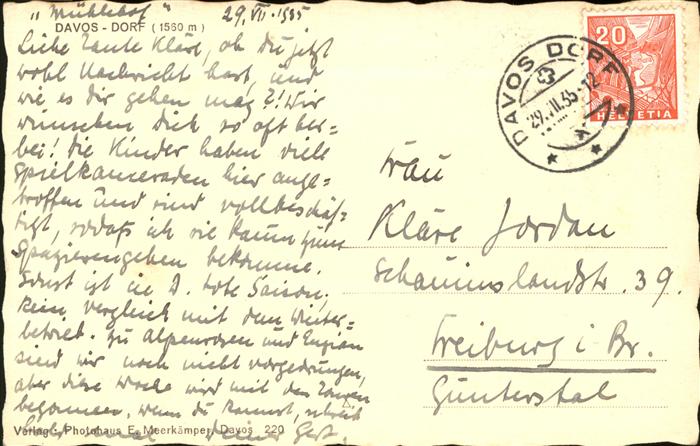 „Mühlehof“ 29. VII. 1935
DAVOS - DORF (1560 m)
Liebe Tante Kläre, ob du jetzt
wohl Nachricht hast, und
wie es dir gehen mag?! Wir
wünschen dich so oft her=
bei! Die Kinder haben viele
Spielkameraden hier ange=
troffen und sind vollbeschäf=
tigt, sodaß ich sie kaum zum
Spazierengehen bekomme.
Sonst ist in D. tote Saison,
kein Vergleich mit dem Winter=
betrieb. Zu Alpenrosen und Enzian
sind wir noch nicht vorgedrungen,
aber diese Woche wird mit den Touren
begonnen. Wenn du kannst, schreib
mal deiner Gert.
Verlag: Photohaus E. Meerkämper, Davos 220
20
HELVETIA
DAVOS DORF
29.VII.35-12
Frau
Kläre Jordan
Schauinslandstr. 39.
Freiburg i Br.
Günterstal